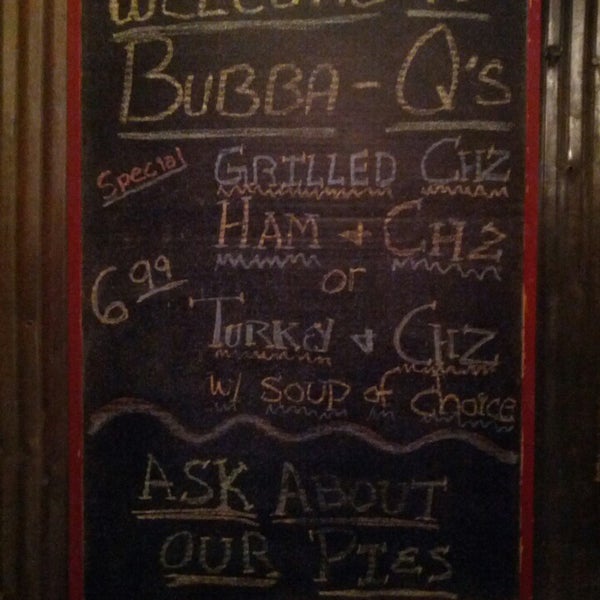 WELCOME TO
BUBBA-Q'S
Special
GRILLED CHZ
HAM & CHZ
6.99
or
TURKEY & CHZ
w/ SOUP of choice
ASK ABOUT
OUR PIES